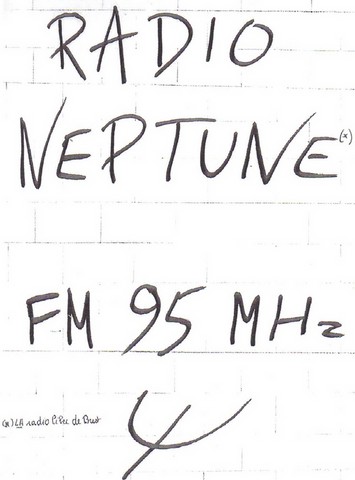 RADIO
NEPTUNE (x)
FM 95 MHz
(x) LA radio libre de Brest